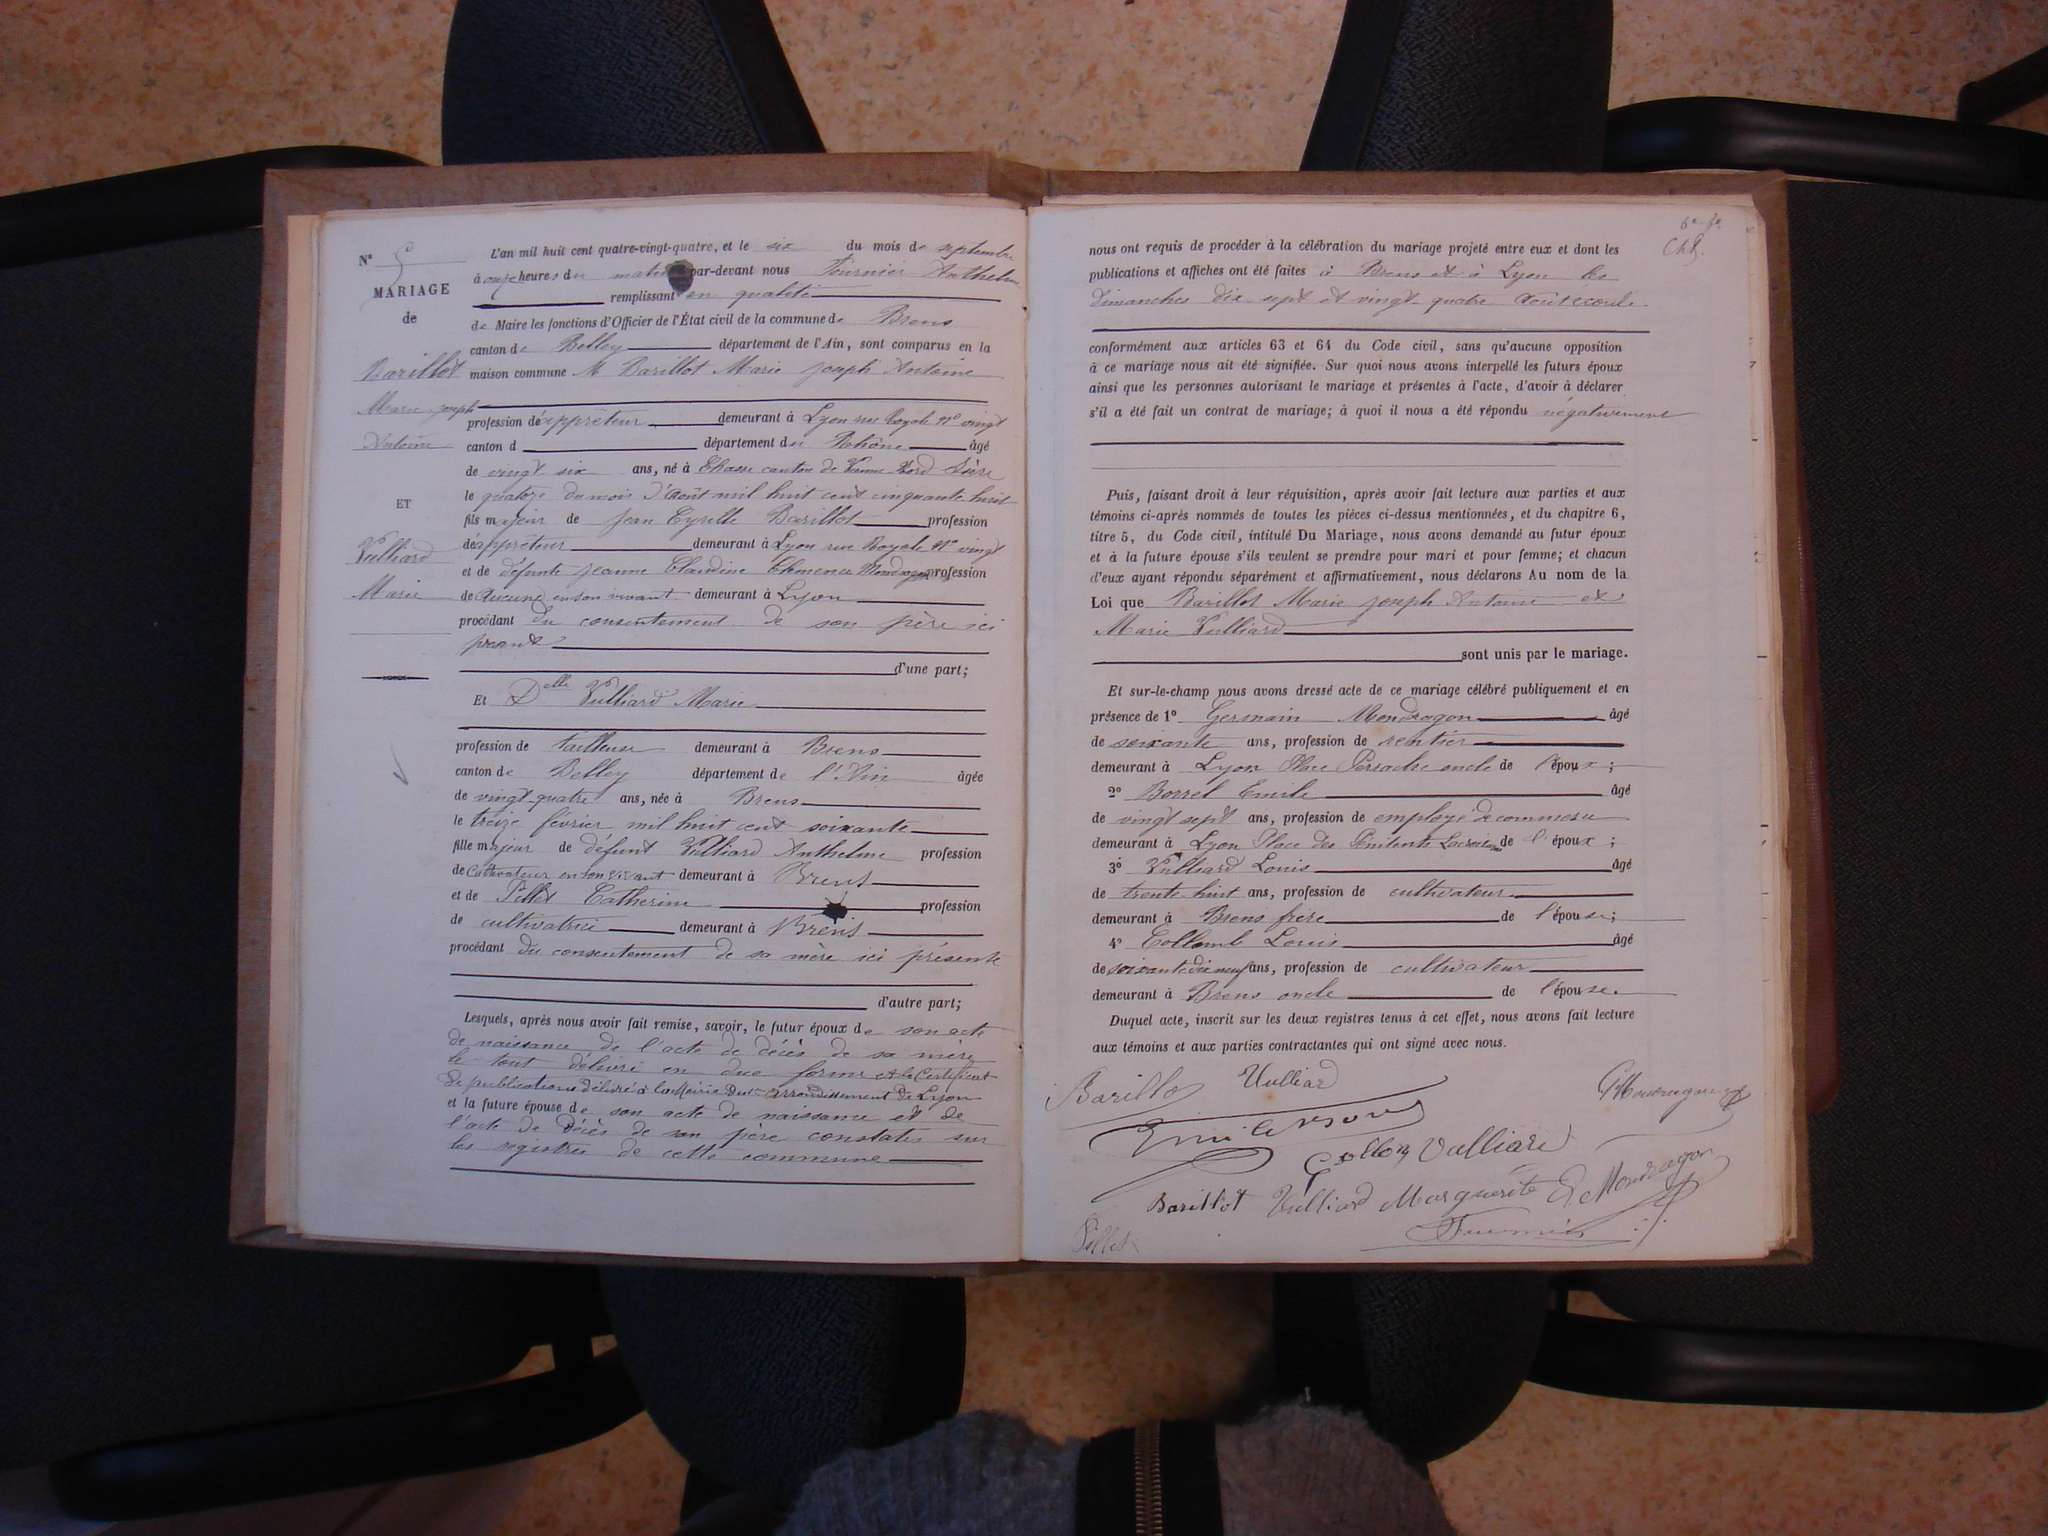 N° 5
MARIAGE
de
Barillot
Marie Joseph
Antoine
ET
Vulliard
Marie
L'an mil huit cent quatre-vingt-quatre, et le six du mois de septembre
à onze heures du matin par-devant nous Fournier Anthelme
remplissant en qualité
de Maire les fonctions d'Officier de l'État civil de la commune de Brens
canton de Belley département de l'Ain, sont comparus en la
maison commune M Barillot Marie Joseph Antoine
profession d'apprêteur demeurant à Lyon rue Royale N° vingt
canton d département du Rhône âgé
de vingt six ans, né à Chasse canton de Vienne Nord Isère
le quatorze du mois d'Août mil huit cent cinquante huit
fils majeur de Jean Cyrille Barillot profession
d'apprêteur demeurant à Lyon rue Royale N° vingt
et de défunte Jeanne Claudine Clémence Mondragon profession
de aucune en son vivant demeurant à Lyon
procédant du consentement de son père ici
présent
d'une part;
Et Delle Vulliard Marie
profession de tailleuse demeurant à Brens
canton de Belley département de l'Ain âgée
de vingt quatre ans, née à Brens
le treize février mil huit cent soixante
fille majeur de défunt Vulliard Anthelme profession
de Cultivateur en son vivant demeurant à Brens
et de Pillet Catherine profession
de cultivatrice demeurant à Brens
procédant du consentement de sa mère ici présente
d'autre part;
Lesquels, après nous avoir fait remise, savoir, le futur époux de son acte
de naissance de l'acte de décès de sa mère
le tout délivré en due forme et le Certificat
de publications délivré à la Mairie du arrondissement de Lyon
et la future épouse de son acte de naissance et de
l'acte de Décès de son père constatés sur
les registres de cette commune
nous ont requis de procéder à la célébration du mariage projeté entre eux et dont les
publications et affiches ont été faites à Brens et à Lyon les
dimanches dix sept et vingt quatre Août écoulé
conformément aux articles 63 et 64 du Code civil, sans qu'aucune opposition
à ce mariage nous ait été signifiée. Sur quoi nous avons interpellé les futurs époux
ainsi que les personnes autorisant le mariage et présentes à l'acte, d'avoir à déclarer
s'il a été fait un contrat de mariage; à quoi il nous a été répondu négativement
Puis, faisant droit à leur réquisition, après avoir fait lecture aux parties et aux
témoins ci-après nommés de toutes les pièces ci-dessus mentionnées, et du chapitre 6,
titre 5, du Code civil, intitulé Du Mariage, nous avons demandé au futur époux
et à la future épouse s'ils veulent se prendre pour mari et pour femme; et chacun
d'eux ayant répondu séparément et affirmativement, nous déclarons Au nom de la
Loi que Barillot Marie Joseph Antoine et
Marie Vulliard
sont unis par le mariage.
Et sur-le-champ nous avons dressé acte de ce mariage célébré publiquement et en
présence de 1° Germain Mondragon âgé
de soixante ans, profession de rentier
demeurant à Lyon Place Perrache oncle de l'époux;
2° Borrel Emile âgé
de vingt sept ans, profession de employé de commerce
demeurant à Lyon Place des Pénitents de l'époux;
3° Vulliard Louis âgé
de trente huit ans, profession de cultivateur
demeurant à Brens frère de l'épouse;
4° Collomb Louis âgé
de soixante dix neuf ans, profession de cultivateur
demeurant à Brens oncle de l'épouse.
Duquel acte, inscrit sur les deux registres tenus à cet effet, nous avons fait lecture
aux témoins et aux parties contractantes qui ont signé avec nous.
Barillot Vulliard
Vulliard
Barillot Vulliard Marguerite G Mondragon
Pillet Fournier